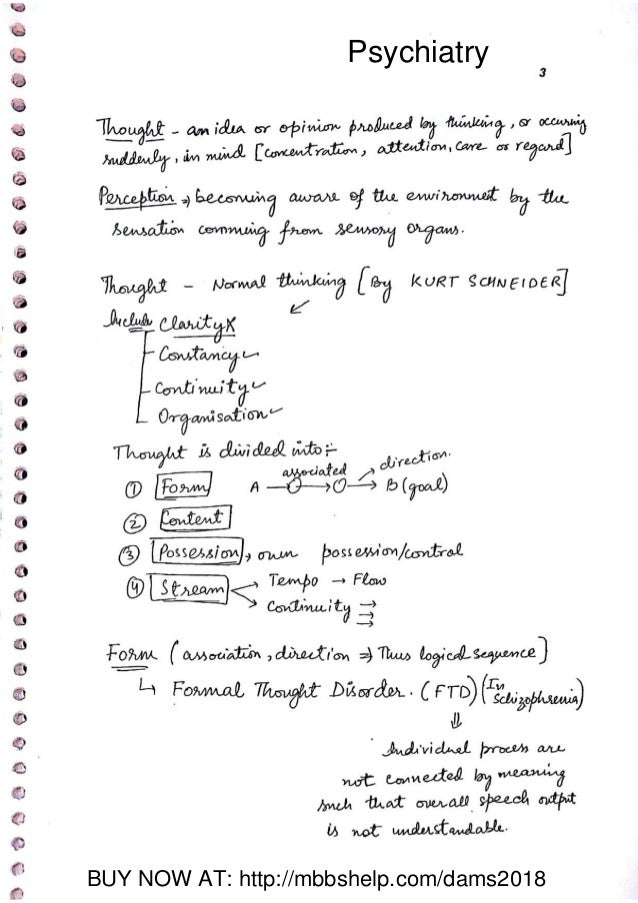 Psychiatry
3
Thought - an idea or opinion produced by thinking, or occuring
suddenly, in mind [concentration, attention, care or regard]
Perception → becoming aware of the environment by the
sensation comming from sensory organs.
Thought - Normal thinking [By KURT SCHNEIDER]
Include Clarity X
Constancy ✓
Continuity ✓
Organisation ✓
Thought is divided into :-
① Form A → associated → direction. B (goal)
② Content
③ Possession → own possession/control
④ Stream → Tempo → Flow
→ Continuity →
Form (association, direction ⇒ Thus logical sequence)
↳ Formal Thought Disorder. (FTD) (In Schizophrenia)
⇓
Individual process are
not connected by meaning
such that overall speech output
is not understandable.
BUY NOW AT: http://mbbshelp.com/dams2018